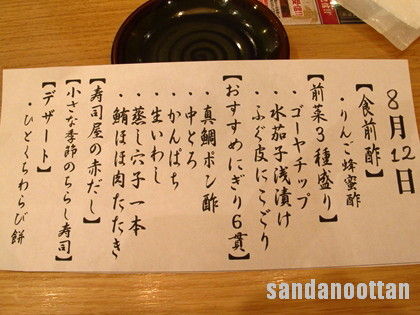 8月12日
【食前酢】
・りんご蜂蜜酢
【前菜3種盛り】
・ゴーヤチップ
・水茄子浅漬け
・ふぐ皮にこごり
【おすすめにぎり6貫】
・真鯛ポン酢
・中とろ
・かんぱち
・生いわし
・蒸し穴子一本
・鮪ほほ肉たたき
【寿司屋の赤だし】
【小さな季節のちらし寿司】
【デザート】
・ひとくちわらび餅
sandanoottan